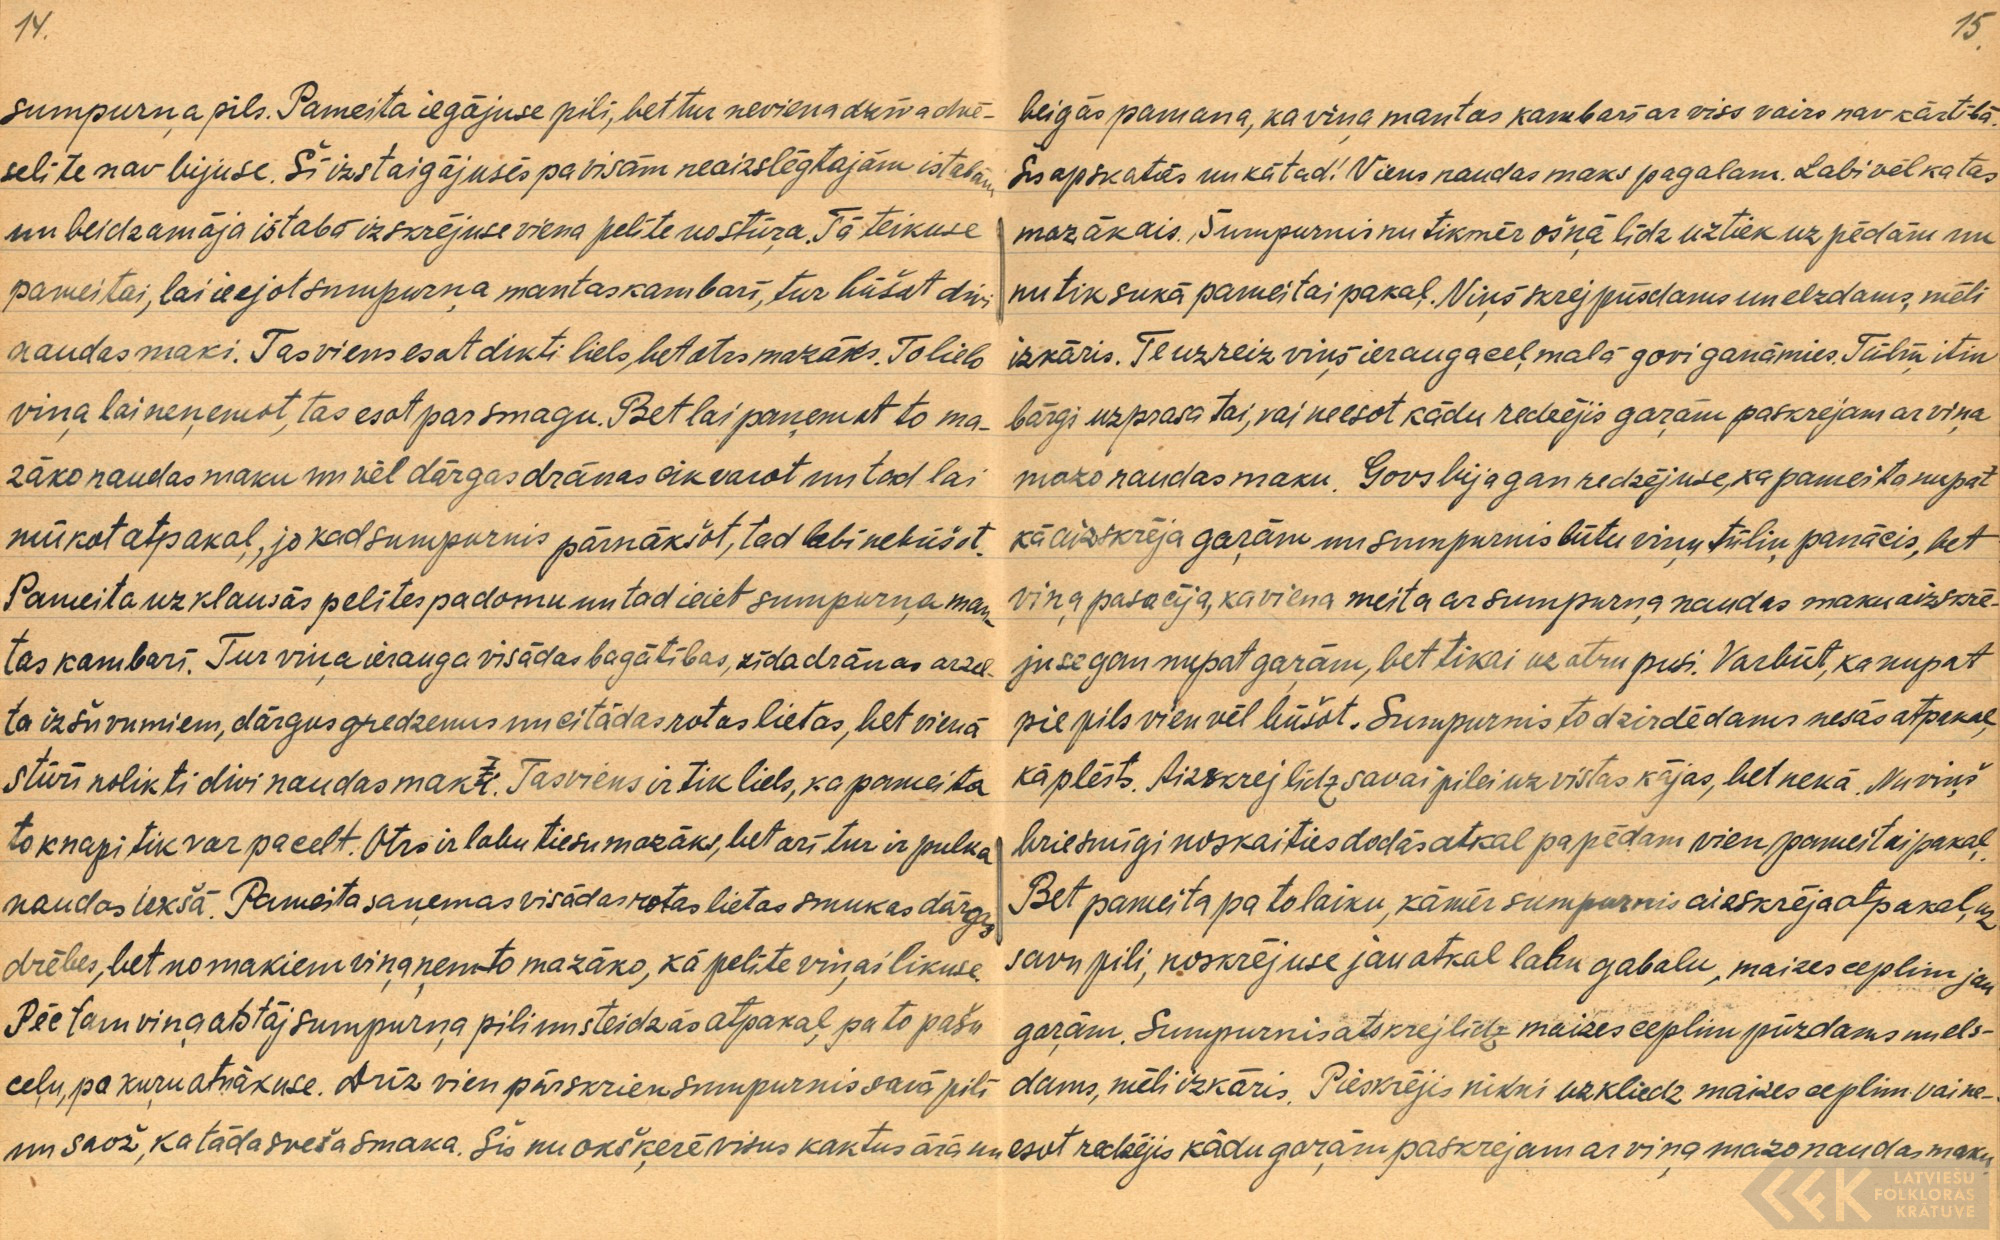 14.
sumpurņa pils. Pameita iegājuse pilī, bet tur neviena dzīva dvē-
selīte nav bijuse. Šī izstaigājusēs pa visām neaizslēgtajām istabām
un beidzamāja istabā izskrējuse viena pelīte no stūŗa. Tā teikuse
pameitai, lai ieejot sumpurņa mantas kambarī, tur būšot divi
naudas maki. Tas viens esot dikti liels, bet otrs mazāks. To lielo
viņa lai neņemot, tas esot par smagu. Bet lai paņemot to ma-
zāko naudas maku un vēl dārgas drānas cik varot un tad lai
mūkot atpakaļ, jo kad sumpurnis pārnākšot, tad labi nebūšot.
Pameita uzklausās pelītes padomu un tad ieiet sumpurņa man-
tas kambarī. Tur viņa ierauga visādas bagātības, zīda drānas ar zel-
ta izšuvumiem, dārgus gredzenus un citādas rotas lietas, bet vienā
stūrī nolikti divi naudas maki. Tas viens ir tik liels, ka pameita
to knapi tik var pacelt. Otrs ir labu tiesu mazāks, bet arī tur ir pulka
naudas iekšā. Pameita saņemas visādas rotas lietas smukas dārgas
drēbes, bet no makiem viņa ņem to mazāko, kā pelīte viņai likuse.
Pēc tam viņa atstāj sumpurņa pili un steidzās atpakaļ pa to pašu
ceļu, pa kuŗu atnākuse. Drīz vien pārskrien sumpurnis savā pilī
un saož, ka tāda sveša smaka. Šis nu okšķerē visus kaktus ārā un
15.
beigās pamana, ka viņa mantas kambarī ar viss vairs nav kārtībā.
Šis apskatās un kā tad! Viens naudas maks pagalam. Labi vēl ka tas
mazākais. Sumpurnis nu tikmēr ošņā līdz uztiek uz pēdām un
nu tik sukā pameitai pakaļ. Viņš skrej pūsdams un elzdams, mēli
izkāris. Te uzreiz viņš ierauga ceļmalā govi ganāmies. Tūliņ itin
bārgi uzprasa tai, vai neesot kādu redzējis gaŗām paskrejam ar viņa
mazo naudas maku. Govs bija gan redzējuse, ka pameita nupat
kā aizskrēja gaŗām un sumpurnis būtu viņu tūliņ panācis, bet
viņa pasacīja, ka viena meita ar sumpurņa naudas maku aizskrē-
juse gan nupat gaŗām, bet tikai uz otru pusi. Varbūt, ka nupat
pie pils vien vēl būšot. Sumpurnis to dzirdēdams nesās atpakaļ,
kā plēsts. Aizskrej līdz savai pilei uz vistas kājas, bet nekā. Nu viņš
briesmīgi noskaities dodās atkal pa pēdām vien pameitai pakaļ.
Bet pameita pa to laiku, kāmēr sumpurnis aizskrēja atpakaļ, uz
savu pili, noskrējuse jau atkal labu gabalu, maizes ceplim jau
gaŗām. Sumpurnis atskrej līdz maizes ceplim pūzdams un els-
dams, mēli izkāris. Pieskrējis nikni uzkliedz maizes ceplim vai ne-
esot redzējis kādu gaŗām paskrejam ar viņa mazo naudas maku.
LATVIEŠU
FOLKLORAS
KRĀTUVE